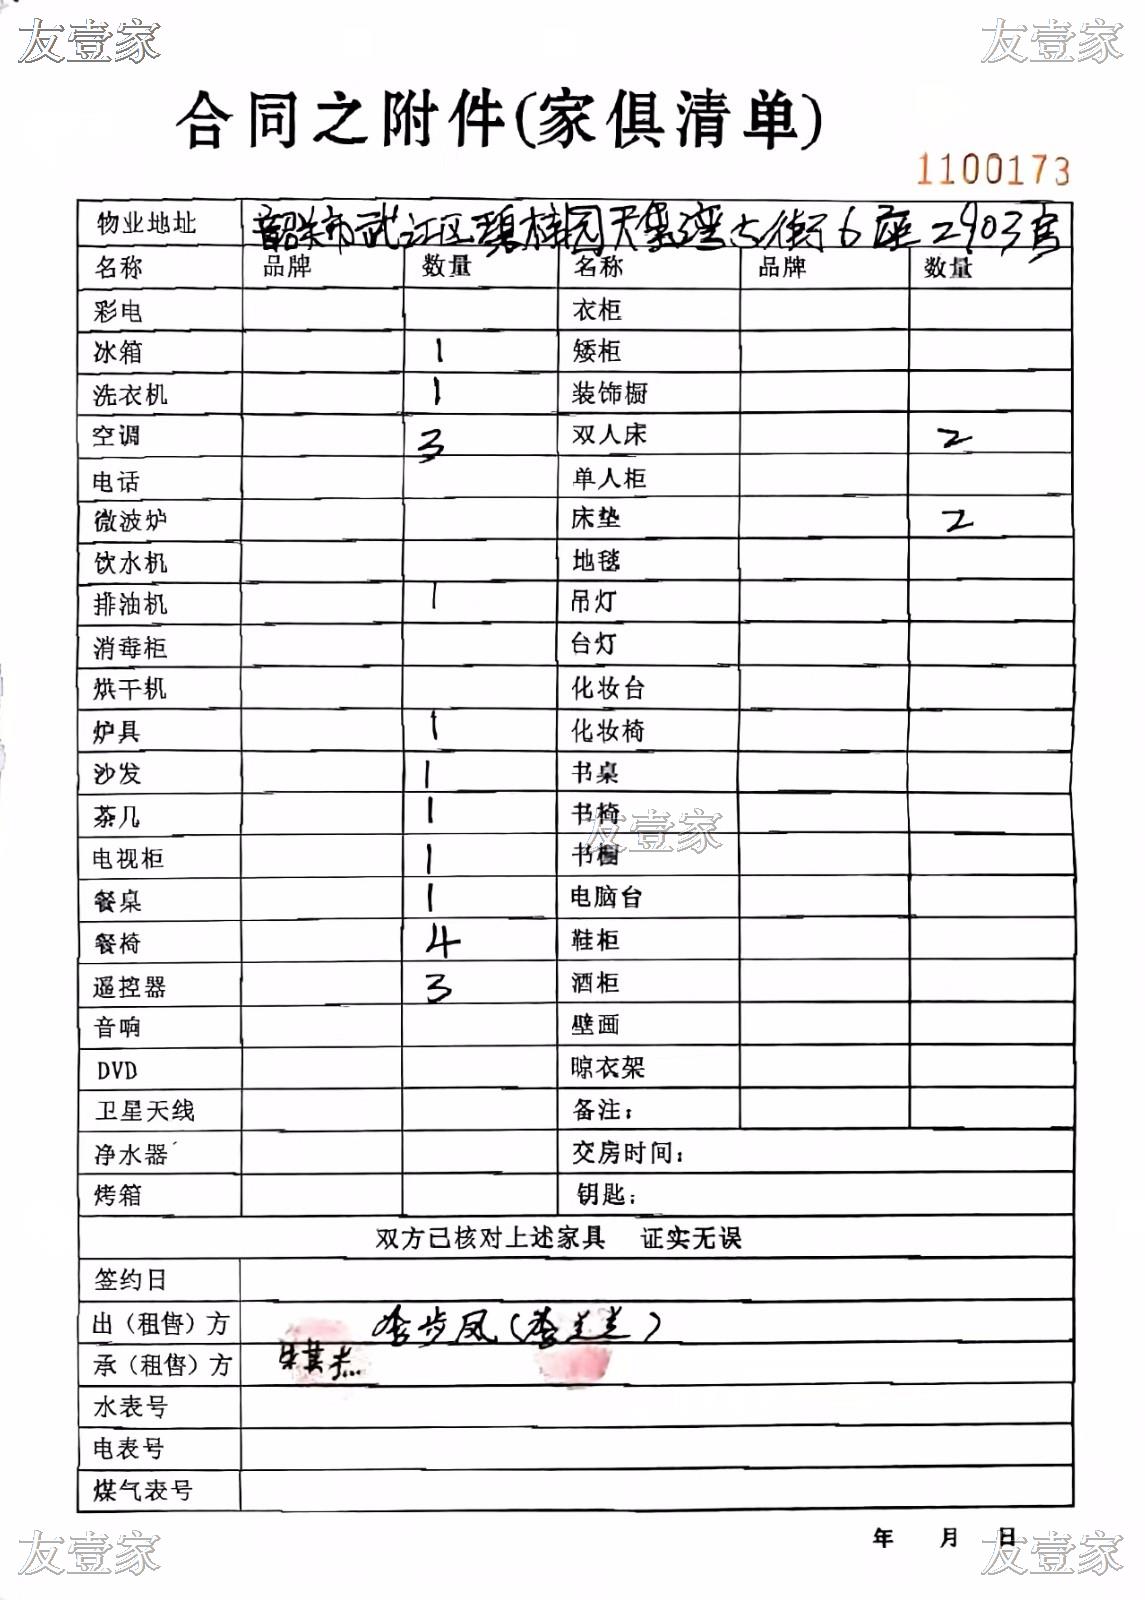 友壹家 友壹家
合同之附件(家俱清单)
1100173
物业地址 韶关市武江区碧桂园天麓湾七街6座2903房
名称 品牌 数量 名称 品牌 数量
彩电 衣柜
冰箱 1 矮柜
洗衣机 1 装饰橱
空调 3 双人床 2
电话 单人柜
微波炉 床垫 2
饮水机 地毯
排油机 1 吊灯
消毒柜 台灯
烘干机 化妆台
炉具 1 化妆椅
沙发 1 书桌
茶几 1 书椅
友壹家
电视柜 1 书橱
餐桌 1 电脑台
餐椅 4 鞋柜
遥控器 3 酒柜
音响 壁画
DVD 晾衣架
卫星天线 备注：
净水器 交房时间：
烤箱 钥匙：
双方已核对上述家具 证实无误
签约日
出（租售）方 李步凤（李 ）
承（租售）方 朱其杰
水表号
电表号
煤气表号
年 月 日
友壹家 友壹家